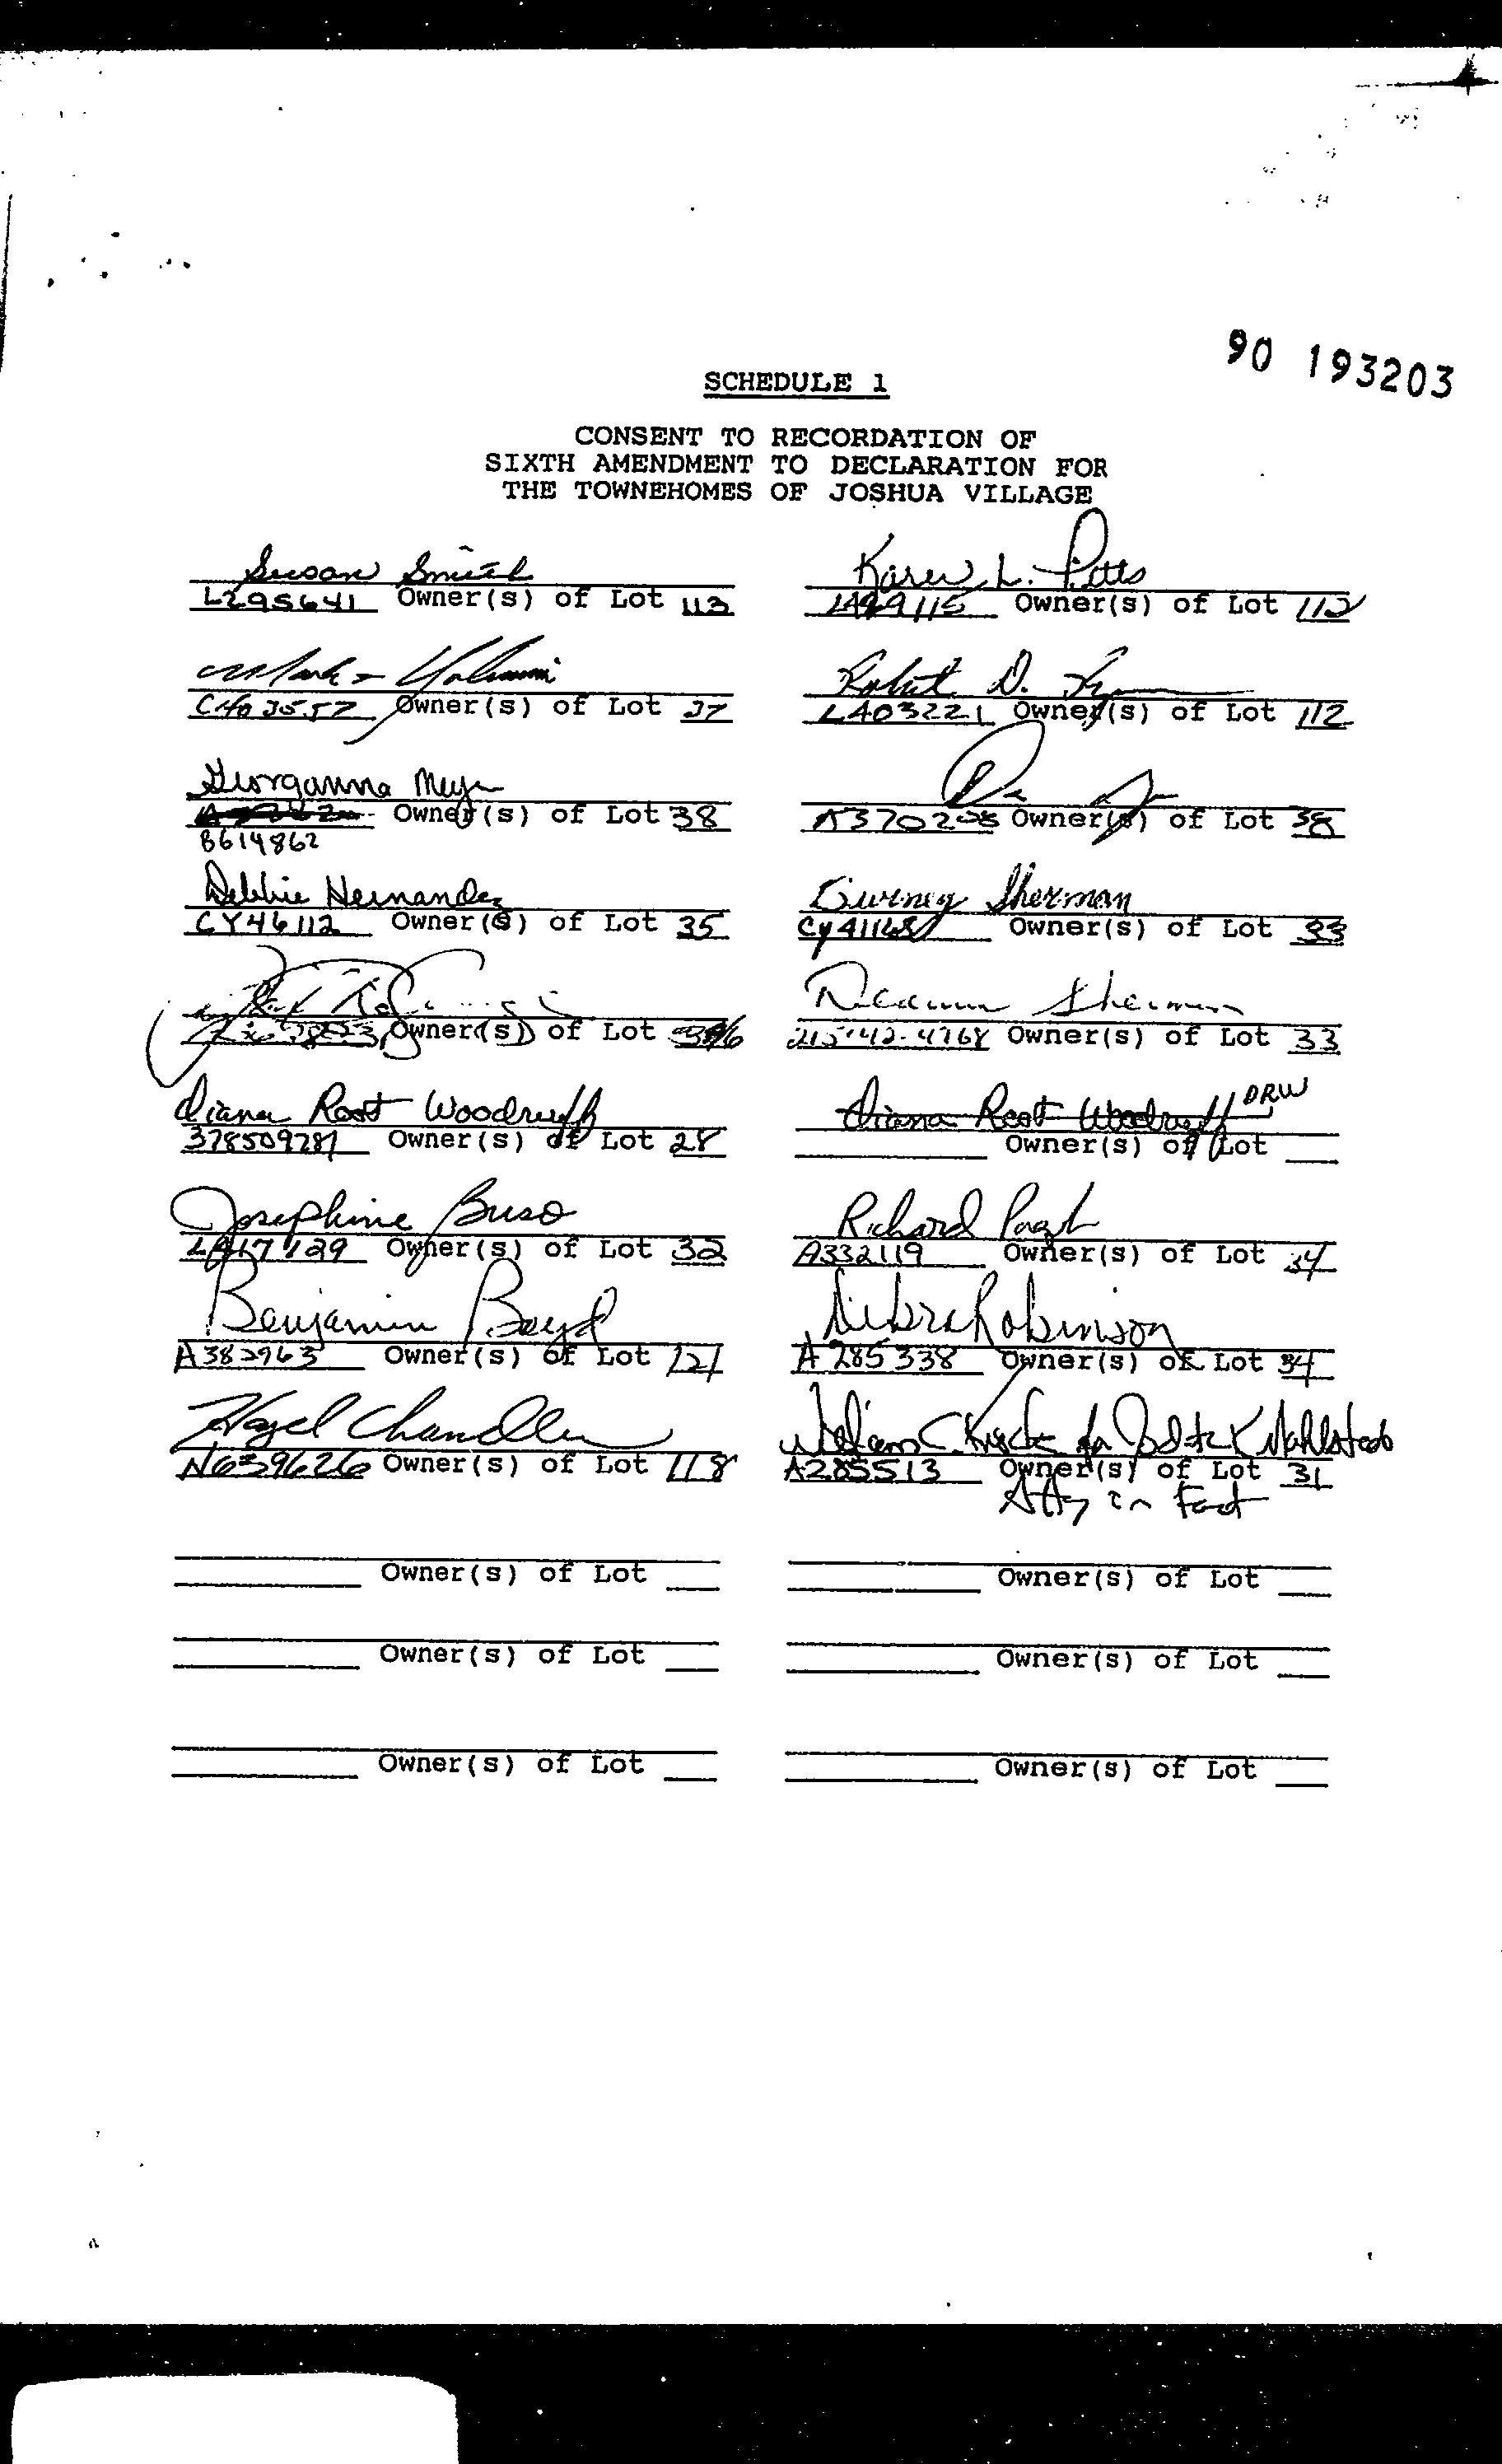 90 193203
SCHEDULE 1
CONSENT TO RECORDATION OF
SIXTH AMENDMENT TO DECLARATION FOR
THE TOWNEHOMES OF JOSHUA VILLAGE
Susan Smith
L295641 Owner(s) of Lot 113
Karen L. Pitts
Owner(s) of Lot 112
Owner(s) of Lot 37
Robert D.
L403221 Owner(s) of Lot 112
Georganna
Owner(s) of Lot 38
B614862
A370208 Owner(s) of Lot 38
Debbie Hernandez
CY46112 Owner(s) of Lot 35
Sherman
Owner(s) of Lot 33
Owner(s) of Lot
Sherman
215-42-4768 Owner(s) of Lot 33
Diana Root Woodruff
378509281 Owner(s) of Lot 28
Diana Root Woodruff DRW
Owner(s) of Lot
Josephine Buso
Owner(s) of Lot 32
Richard
A332119 Owner(s) of Lot 34
Benjamin Boyd
A382963 Owner(s) of Lot 121
Debra Robinson
A285338 Owner(s) of Lot 34
Hazel Chandler
N639626 Owner(s) of Lot 118
William C.
A285513 Owner(s) of Lot 31
Atty in Fact
Owner(s) of Lot
Owner(s) of Lot
Owner(s) of Lot
Owner(s) of Lot
Owner(s) of Lot
Owner(s) of Lot